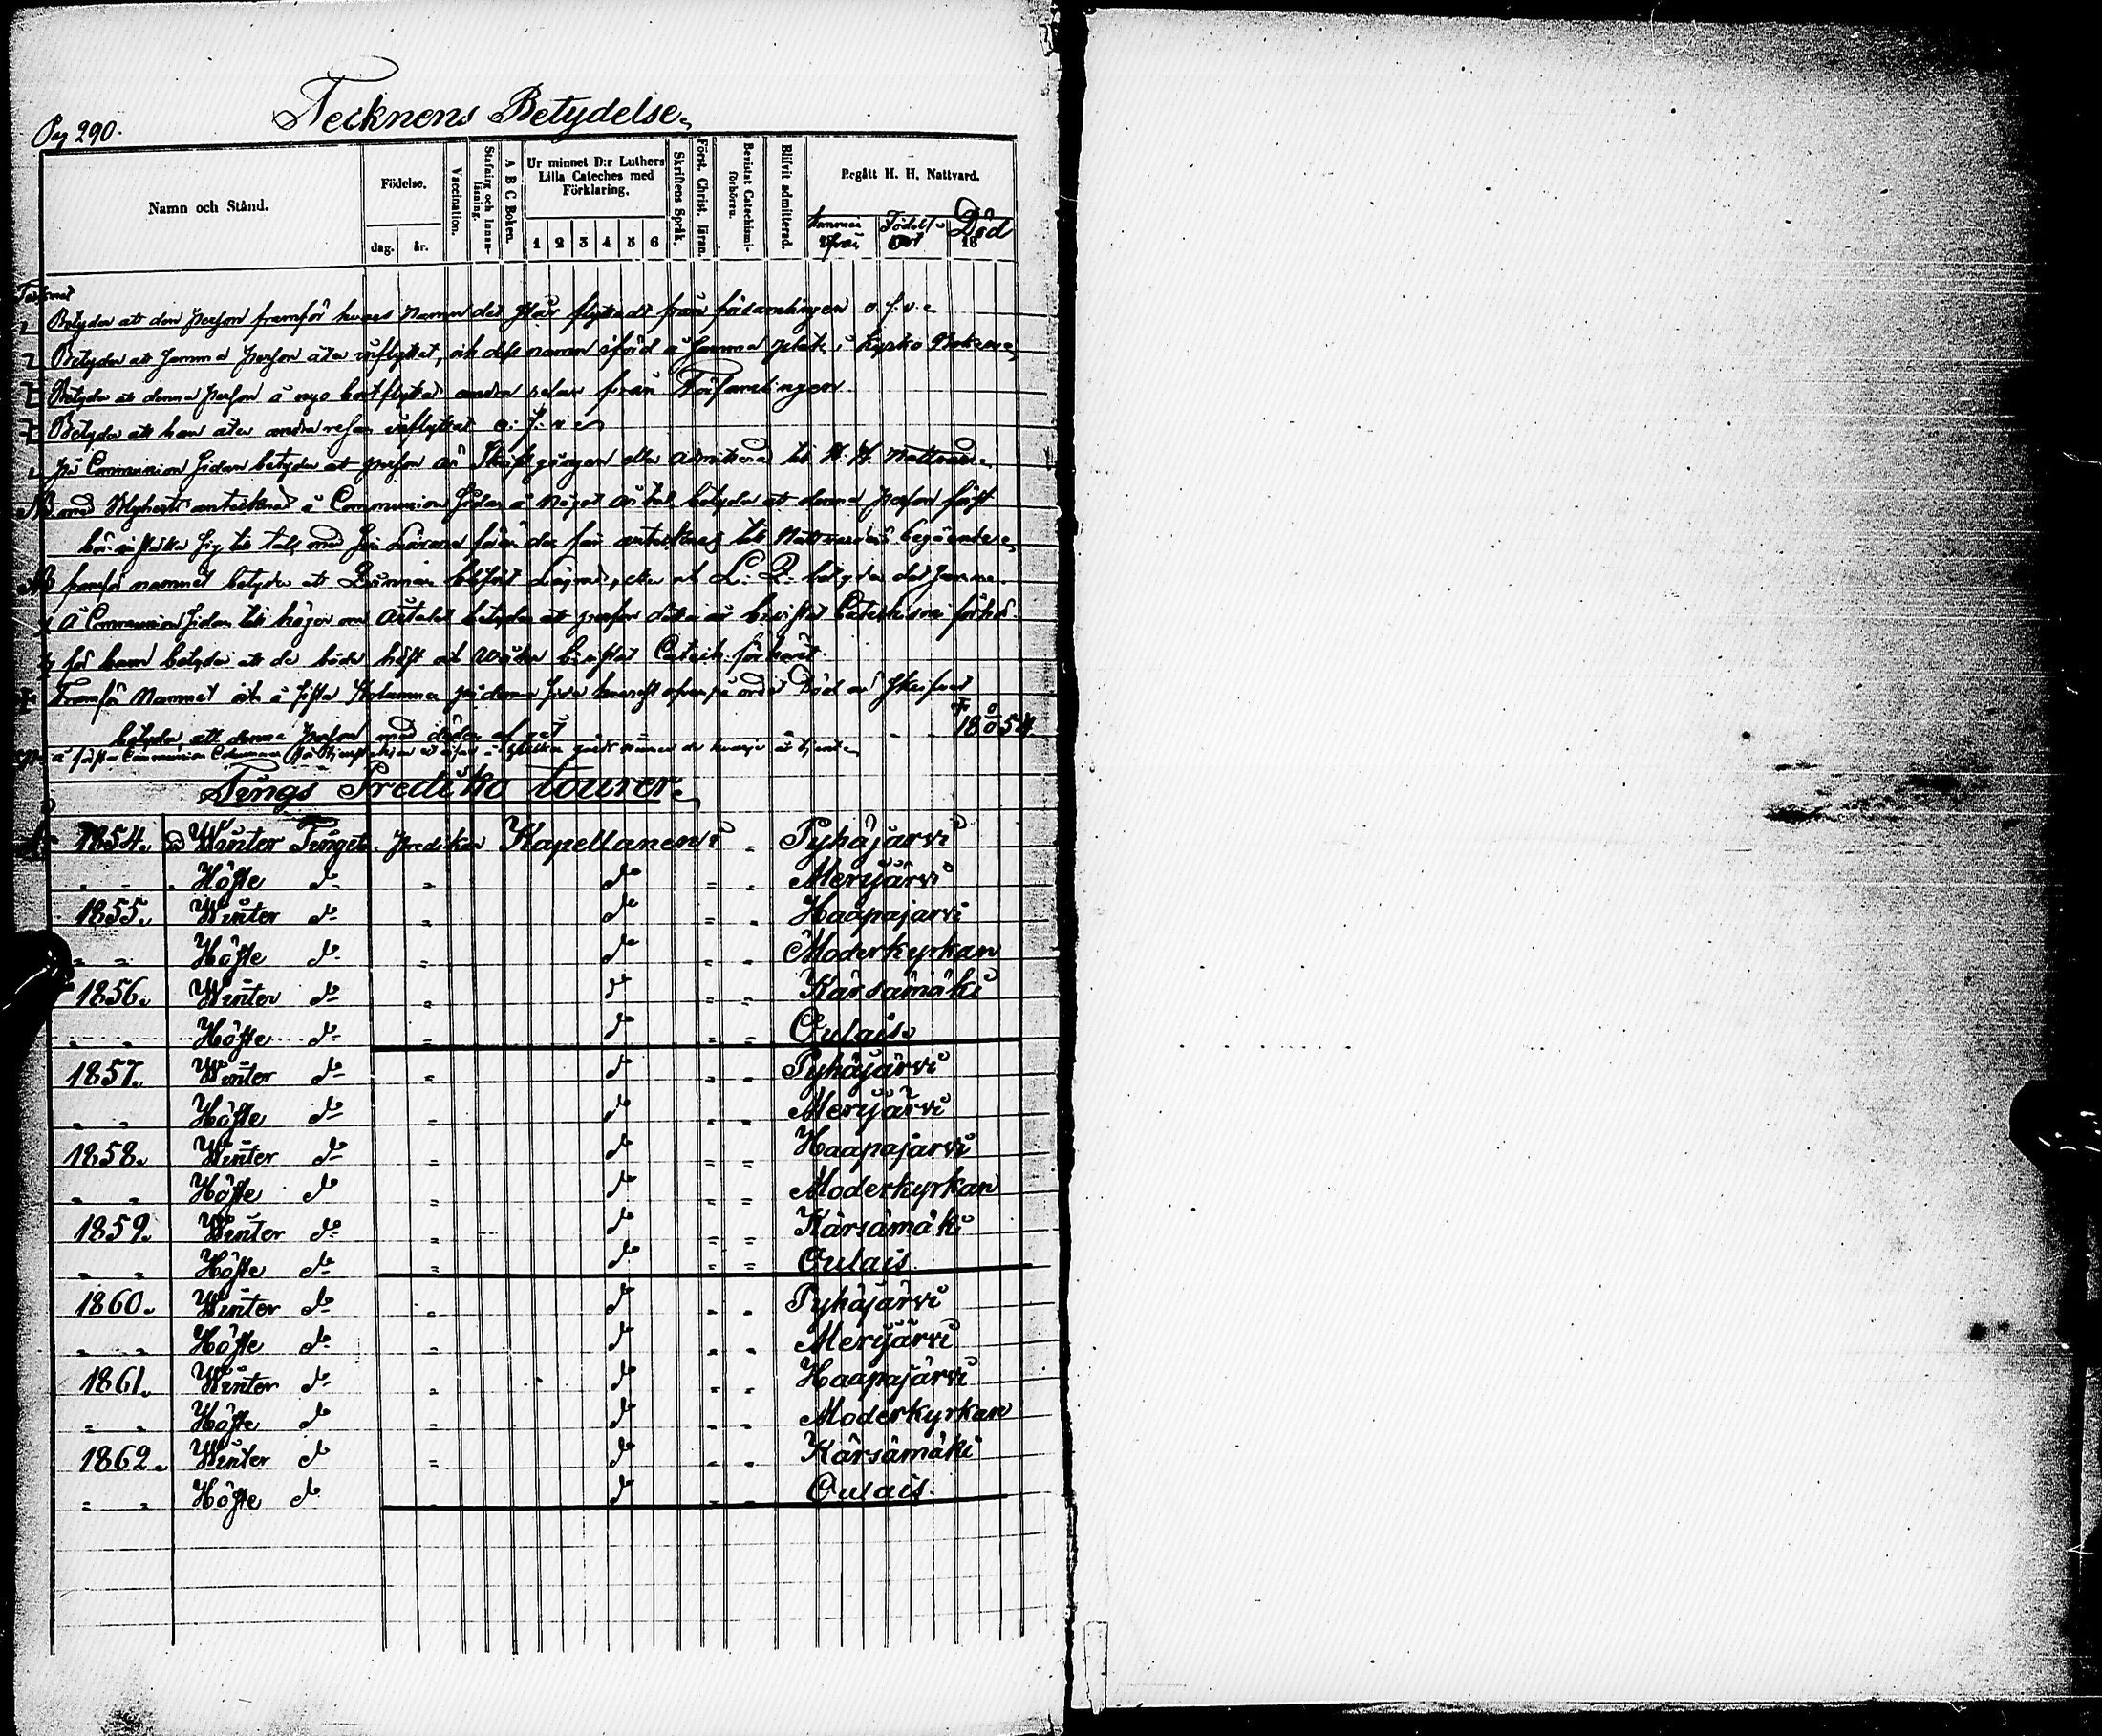 Pag 290.
Tecknens Betydelse.
Namn och Stånd.
Födelse.
dag. år.
Vaccination.
Stafning och Innan-läsning.
A B C Boken.
Ur minnet D:r Luthers Lilla Cateches med Förklaring.
1 2 3 4 5 6
Skriftens Språk.
Först. Christ. läran.
Bevistat Catechismi-förhören.
Blifvit admitterad.
Begått H. H. Nattvard.
Födelse Ort
Död
18
Betyder att den person framför hvars namn det står flyttadt från församlingen o. s. v.
Betyder att samma person åter inflyttat, och dess namn införd å samma plats i Kyrko Boken
Betyder att denna person å nyo bortflyttat andra resan från Församlingen
Betyder att han åter andra resan inflyttat o. s. v.
på Communion Sidan betyder att person är Skriftgången eller admitterad till H. H. Nattvard.
NB med Blyherts antecknad å Communion Sidan å något årtal betyder att denna person först
bör inställa sig till tals med sin Lärare förän den får antecknas till Nattvardens begående.
NB framför namnet betyder att
å Communion Sidan till höger om årtalet betyder att person detta år bevistat Catechismi förhör.
för barn betyder att de både höst och winter bevistat Catech. förhöret.
Framför Namnet och å sista Kolumnen på denna sida hvarest ofvanpå ordet Död är skrifvet
betyder, att denna person med döden afgått
18 54
å första Communion Columnen
Tings Prediko tourer.
1854. Winter Tinget predikar Kapellanen i " Pyhäjärvi
" " Höste do " do " " Merijärvi
1855. Winter do " do " " Haapajärvi
" " Höste do " do " " Moderkyrkan
1856. Winter do " do " " Kärsämäki
" " Höste do " do " " Oulais
1857. Winter do " do " " Pyhäjärvi
" " Höste do " do " " Merijärvi
1858. Winter do " do " " Haapajärvi
" " Höste do " do " " Moderkyrkan
1859. Winter do " do " " Kärsämäki
" " Höste do " do " " Oulais
1860. Winter do " do " " Pyhäjärvi
" " Höste do " do " " Merijärvi
1861. Winter do " do " " Haapajärvi
" " Höste do " do " " Moderkyrkan
1862. Winter do " do " " Kärsämäki
" " Höste do " do " " Oulais.